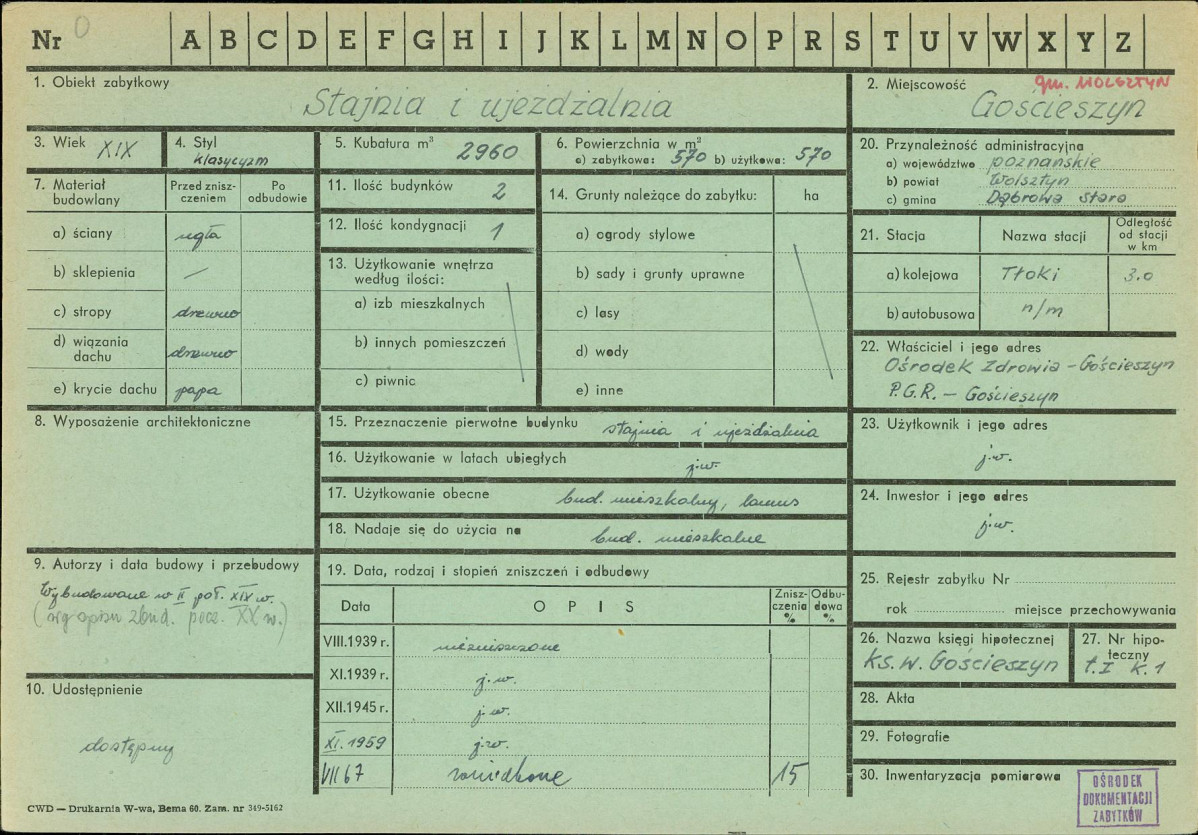 Nr 0 A B C D E F G H I J K L M N O P R S T U V W X Y Z
1. Obiekt zabytkowy
Stajnia i ujeżdżalnia
2. Miejscowość gm. WOLSZTYN
Gościeszyn
3. Wiek XIX
4. Styl
klasycyzm
5. Kubatura m³ 2960
6. Powierzchnia w m²
a) zabytkowa: 570 b) użytkowa: 570
20. Przynależność administracyjna
a) województwo poznańskie
b) powiat Wolsztyn
c) gmina Dąbrowa Stara
7. Materiał budowlany
Przed zniszczeniem
Po odbudowie
a) ściany cegła
b) sklepienia —
c) stropy drewno
d) wiązania dachu drewno
e) krycie dachu papa
11. Ilość budynków 2
12. Ilość kondygnacji 1
13. Użytkowanie wnętrza
według ilości:
a) izb mieszkalnych
b) innych pomieszczeń
c) piwnic
14. Grunty należące do zabytku: ha
a) ogrody stylowe
b) sady i grunty uprawne
c) lasy
d) wody
e) inne
21. Stacja Nazwa stacji
Odległość
od stacji
w km
a) kolejowa Tłoki 3.0
b) autobusowa n/m
22. Właściciel i jego adres
Ośrodek Zdrowia – Gościeszyn
P.G.R. – Gościeszyn
8. Wyposażenie architektoniczne
15. Przeznaczenie pierwotne budynku stajnia i ujeżdżalnia
16. Użytkowanie w latach ubiegłych j.w.
17. Użytkowanie obecne bud. mieszkalny, lamus
18. Nadaje się do użycia na bud. mieszkalne
23. Użytkownik i jego adres
j.w.
24. Inwestor i jego adres
j.w.
9. Autorzy i data budowy i przebudowy
Wybudowane w II poł. XIX w.
(wg opisu zbud. pocz. XX w.)
19. Data, rodzaj i stopień zniszczeń i odbudowy
Data OPIS
Zniszczenia %
Odbudowa %
VIII.1939 r. niezniszczone
XI.1939 r. j.w.
XII.1945 r. j.w.
XI.1959 j.w.
VII 67 zaniedbane 15
10. Udostępnienie
dostępny
25. Rejestr zabytku Nr
rok miejsce przechowywania
26. Nazwa księgi hipotecznej
Ks. w. Gościeszyn
27. Nr hipoteczny
t. I k. 1
28. Akta
29. Fotografie
30. Inwentaryzacja pomiarowa
OŚRODEK
DOKUMENTACJI
ZABYTKÓW
CWD — Drukarnia W-wa, Bema 60. Zam. nr 349-5162